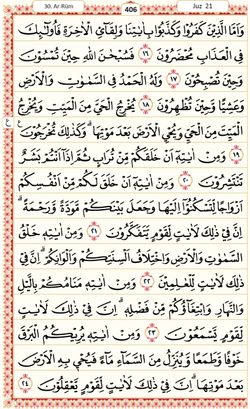 30. Ar Rūm 406 Juz 21
وَاَمَّا الَّذِيْنَ كَفَرُوْا وَكَذَّبُوْا بِاٰيٰتِنَا وَلِقَآئِ الْاٰخِرَةِ فَاُولٰٓئِكَ
فِى الْعَذَابِ مُحْضَرُوْنَ ١٦ فَسُبْحٰنَ اللّٰهِ حِيْنَ تُمْسُوْنَ
وَحِيْنَ تُصْبِحُوْنَ ١٧ وَلَهُ الْحَمْدُ فِى السَّمٰوٰتِ وَالْاَرْضِ
وَعَشِيًّا وَّحِيْنَ تُظْهِرُوْنَ ١٨ يُخْرِجُ الْحَيَّ مِنَ الْمَيِّتِ وَيُخْرِجُ
الْمَيِّتَ مِنَ الْحَيِّ وَيُحْيِ الْاَرْضَ بَعْدَ مَوْتِهَا ۗ وَكَذٰلِكَ تُخْرَجُوْنَ
١٩ وَمِنْ اٰيٰتِهٖٓ اَنْ خَلَقَكُمْ مِّنْ تُرَابٍ ثُمَّ اِذَآ اَنْتُمْ بَشَرٌ
تَنْتَشِرُوْنَ ٢٠ وَمِنْ اٰيٰتِهٖٓ اَنْ خَلَقَ لَكُمْ مِّنْ اَنْفُسِكُمْ
اَزْوَاجًا لِّتَسْكُنُوْٓا اِلَيْهَا وَجَعَلَ بَيْنَكُمْ مَّوَدَّةً وَّرَحْمَةً ۗ
اِنَّ فِيْ ذٰلِكَ لَاٰيٰتٍ لِّقَوْمٍ يَّتَفَكَّرُوْنَ ٢١ وَمِنْ اٰيٰتِهٖ خَلْقُ
السَّمٰوٰتِ وَالْاَرْضِ وَاخْتِلَافُ اَلْسِنَتِكُمْ وَاَلْوَانِكُمْ ۗ اِنَّ
فِيْ ذٰلِكَ لَاٰيٰتٍ لِّلْعٰلِمِيْنَ ٢٢ وَمِنْ اٰيٰتِهٖ مَنَامُكُمْ بِالَّيْلِ
وَالنَّهَارِ وَابْتِغَآؤُكُمْ مِّنْ فَضْلِهٖ ۗ اِنَّ فِيْ ذٰلِكَ لَاٰيٰتٍ
لِّقَوْمٍ يَّسْمَعُوْنَ ٢٣ وَمِنْ اٰيٰتِهٖ يُرِيْكُمُ الْبَرْقَ
خَوْفًا وَّطَمَعًا وَّيُنَزِّلُ مِنَ السَّمَآءِ مَآءً فَيُحْيٖ بِهِ الْاَرْضَ
بَعْدَ مَوْتِهَا ۗ اِنَّ فِيْ ذٰلِكَ لَاٰيٰتٍ لِّقَوْمٍ يَّعْقِلُوْنَ ٢٤